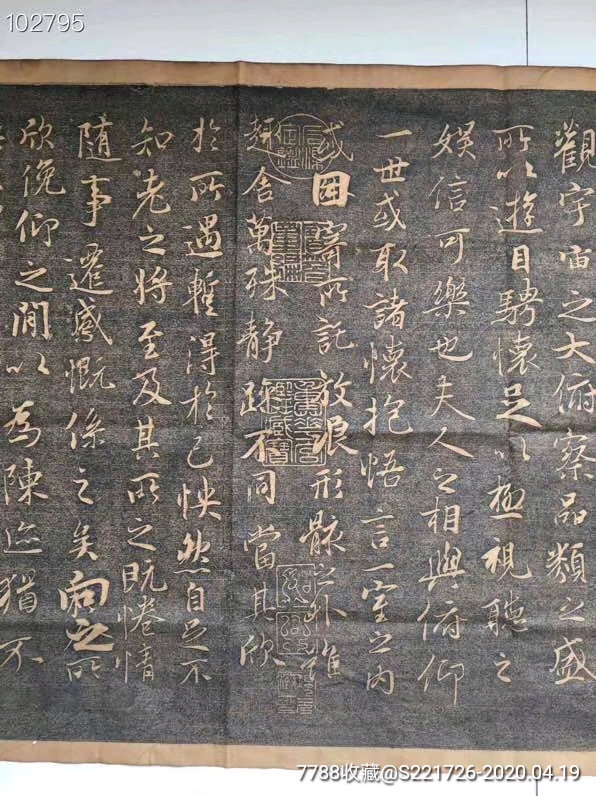 102795
觀宇宙之大俯察品類之盛
所以遊目騁懷足以極視聽之
娛信可樂也夫人之相與俯仰
一世或取諸懷抱悟言一室之內
或因寄所託放浪形骸之外雖
趣舍萬殊静躁不同當其欣
於所遇暫得於己怏然自足不
知老之將至及其所之既惓情
隨事遷感慨係之矣向之所
欣俛仰之閒以為陳迹猶不
7788收藏@S221726-2020.04.19